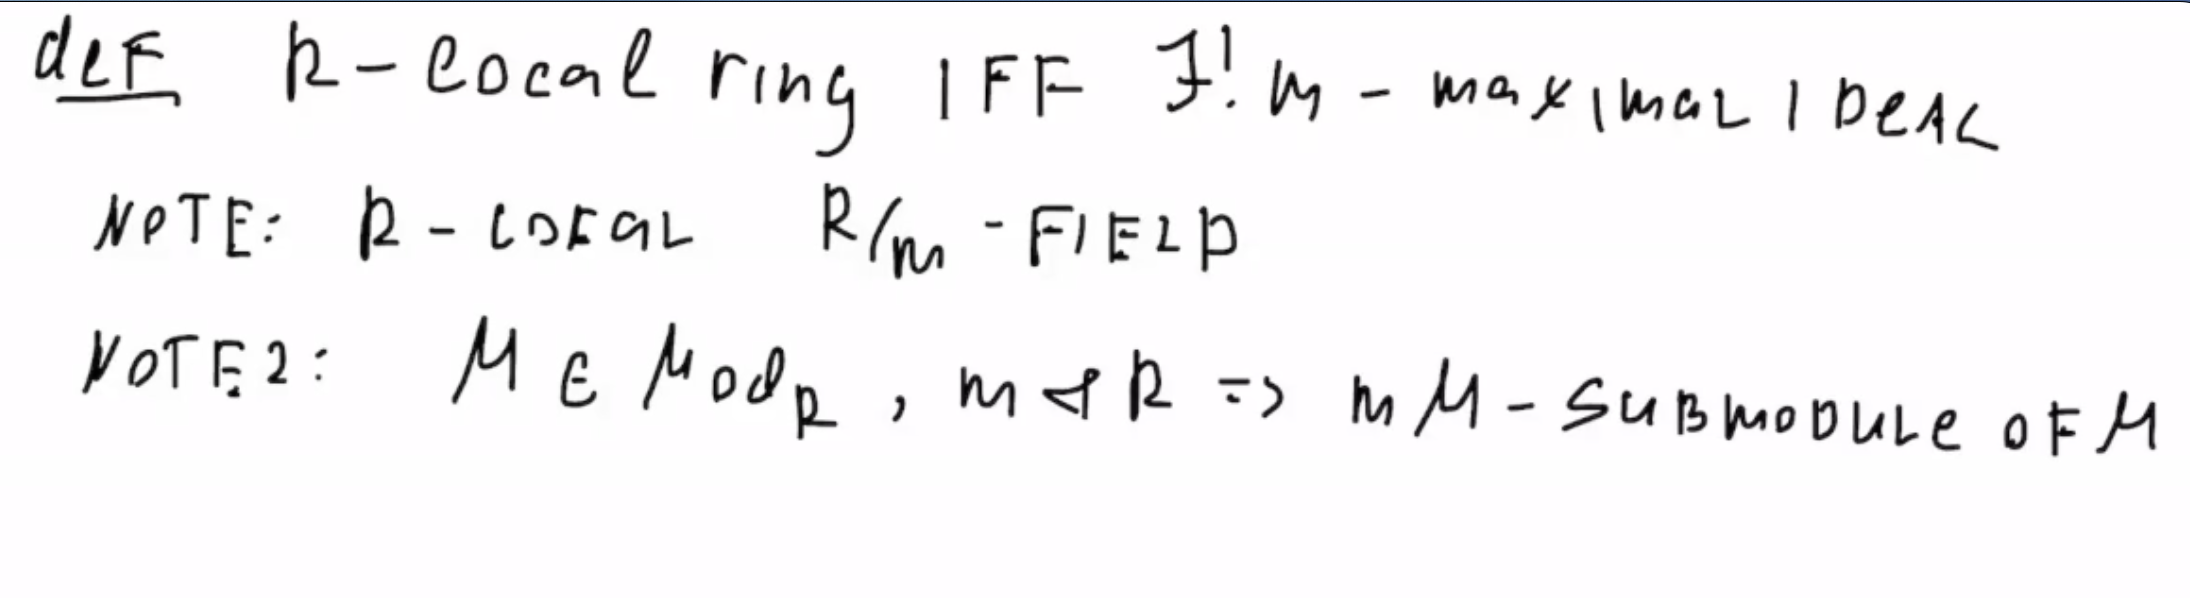 def R - local ring IFF ∃! m - maximal IDEAL
NOTE: R - LOCAL R/m - FIELD
NOTE2: M ∈ Mod_R, m ⊲ R => mM - SUBMODULE OF M